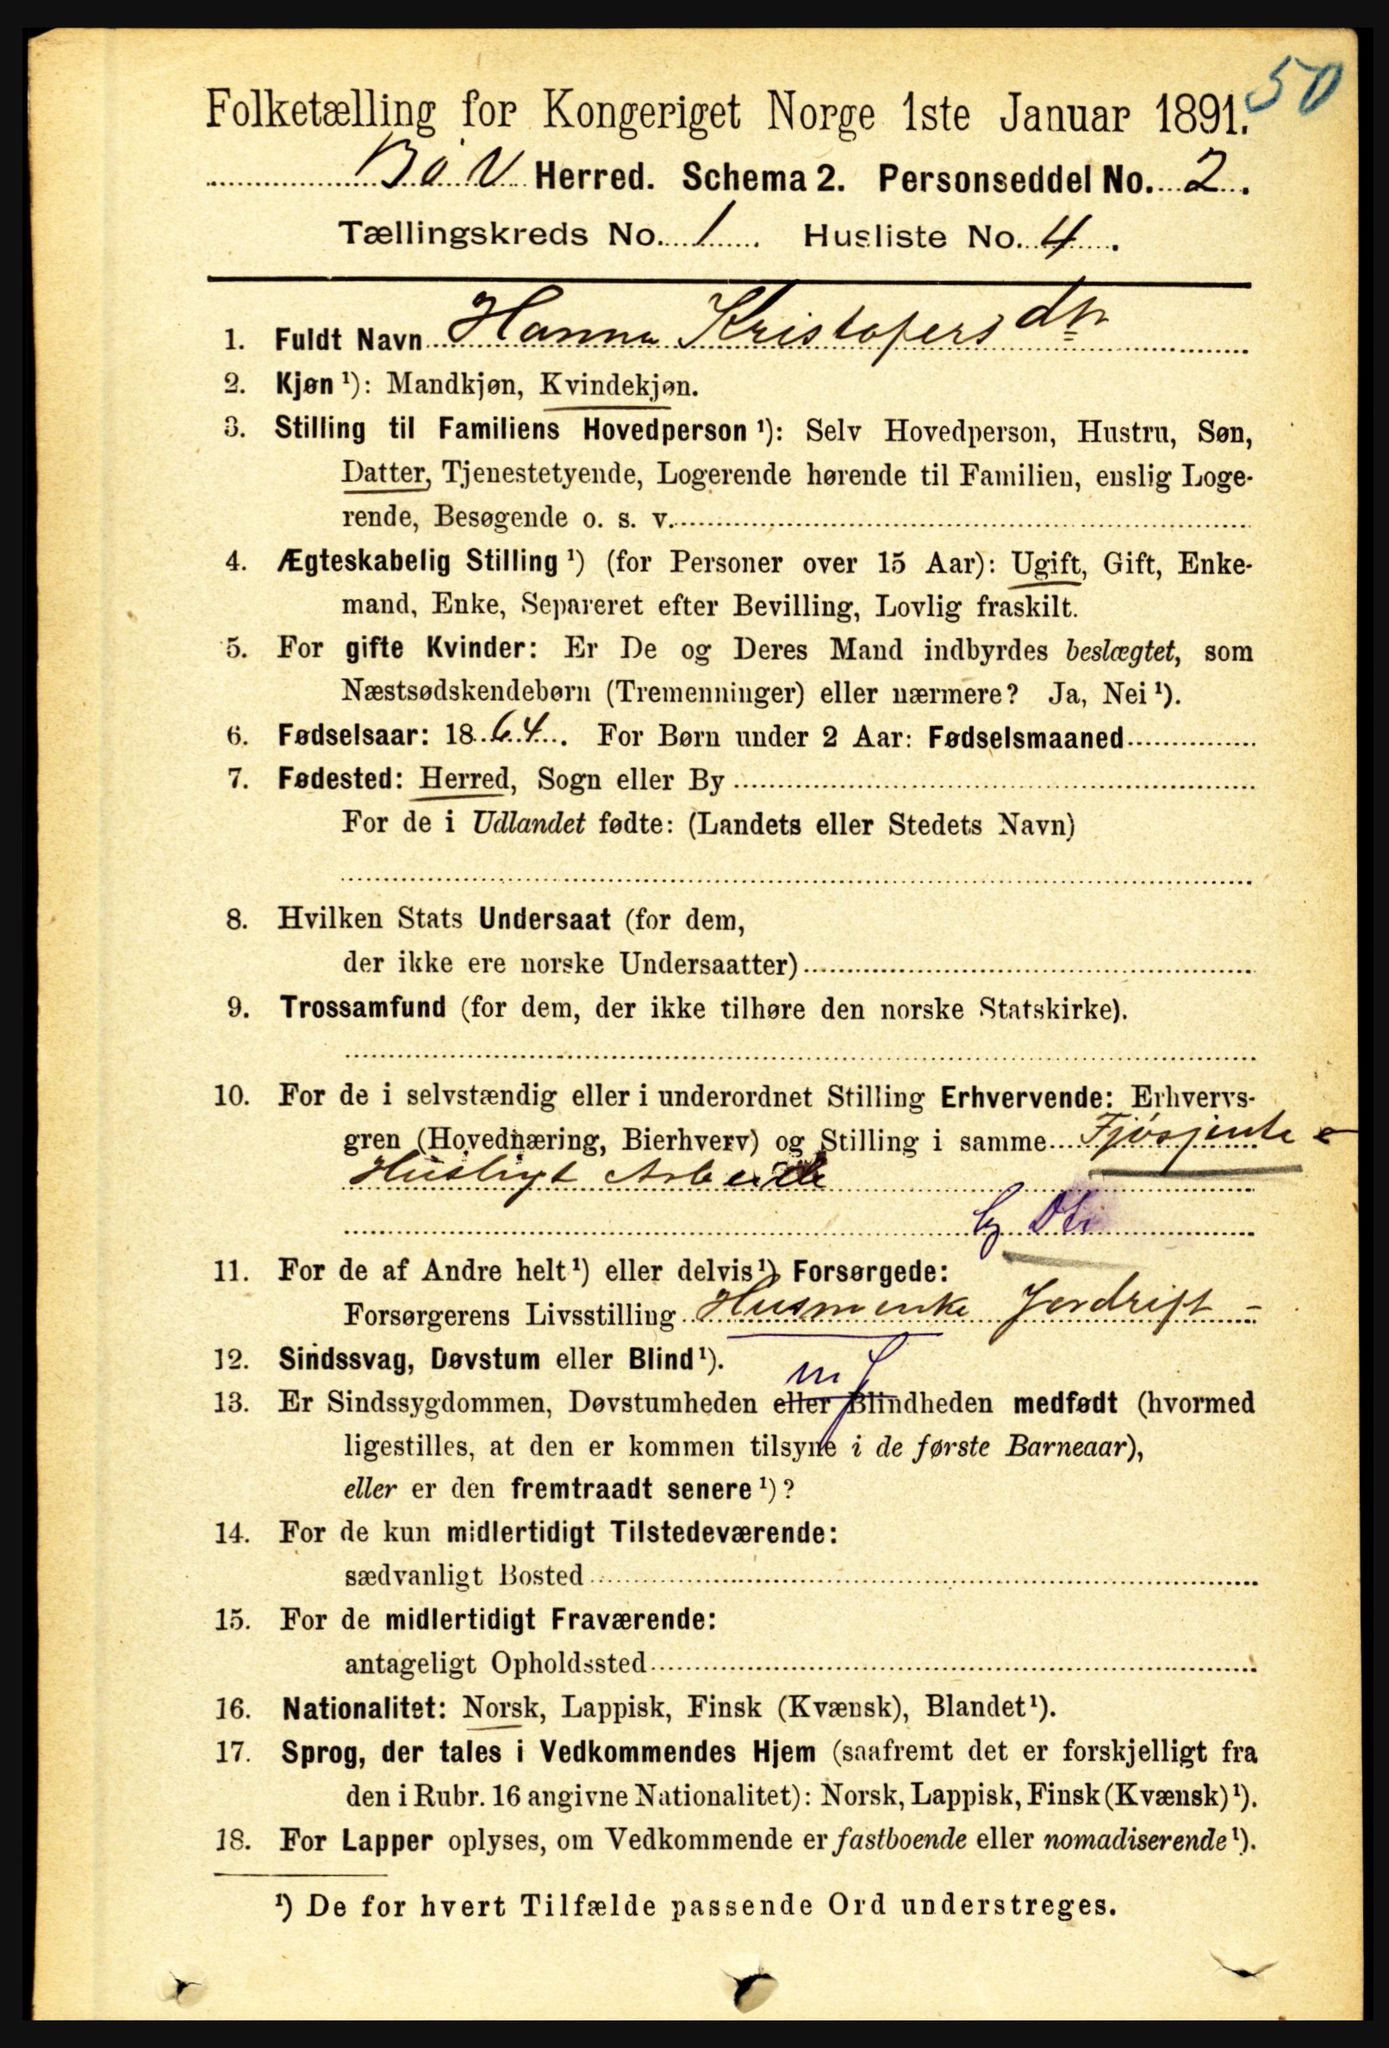 50
Folketælling for Kongeriget Norge 1ste Januar 1891.
Bøv Herred. Schema 2. Personseddel No. 2.
Tællingskreds No. 1. Husliste No. 4.
1. Fuldt Navn Hanna Kristofersdtr
2. Kjøn ¹): Mandkjøn, Kvindekjøn.
3. Stilling til Familiens Hovedperson ¹): Selv Hovedperson, Hustru, Søn,
Datter, Tjenestetyende, Logerende hørende til Familien, enslig Loge-
rende, Besøgende o. s. v.
4. Ægteskabelig Stilling ¹) (for Personer over 15 Aar): Ugift, Gift, Enke-
mand, Enke, Separeret efter Bevilling, Lovlig fraskilt.
5. For gifte Kvinder: Er De og Deres Mand indbyrdes beslægtet, som
Næstsødskendebørn (Tremenninger) eller nærmere? Ja, Nei ¹).
6. Fødselsaar: 1864. For Børn under 2 Aar: Fødselsmaaned
7. Fødested: Herred, Sogn eller By
For de i Udlandet fødte: (Landets eller Stedets Navn)
8. Hvilken Stats Undersaat (for dem,
der ikke ere norske Undersaatter)
9. Trossamfund (for dem, der ikke tilhøre den norske Statskirke).
10. For de i selvstændig eller i underordnet Stilling Erhvervende: Erhvervs-
gren (Hovednæring, Bierhverv) og Stilling i samme Fjøsjente
Husligt Arbeide
11. For de af Andre helt ¹) eller delvis ¹) Forsørgede:
Forsørgerens Livsstilling Husmenke Jordrift -
12. Sindssvag, Døvstum eller Blind ¹).
13. Er Sindssygdommen, Døvstumheden eller Blindheden medfødt (hvormed
ligestilles, at den er kommen tilsyne i de første Barneaar),
eller er den fremtraadt senere ¹)?
14. For de kun midlertidigt Tilstedeværende:
sædvanligt Bosted
15. For de midlertidigt Fraværende:
antageligt Opholdssted
16. Nationalitet: Norsk, Lappisk, Finsk (Kvænsk), Blandet ¹).
17. Sprog, der tales i Vedkommendes Hjem (saafremt det er forskjelligt fra
den i Rubr. 16 angivne Nationalitet): Norsk, Lappisk, Finsk (Kvænsk) ¹).
18. For Lapper oplyses, om Vedkommende er fastboende eller nomadiserende ¹).
¹) De for hvert Tilfælde passende Ord understreges.